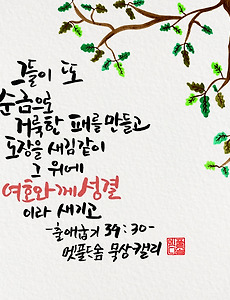 그들이 또
순금으로
거룩한 패를 만들고
도장을 새김같이
그 위에
여호와께 성결
이라 새기고
-출애굽기 39:30-
멋풀드숨 묵상캘리